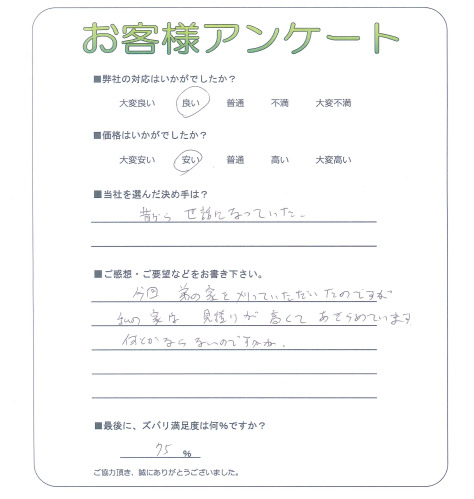 お客様アンケート
■弊社の対応はいかがでしたか？
大変良い 良い 普通 不満 大変不満
■価格はいかがでしたか？
大変安い 安い 普通 高い 大変高い
■当社を選んだ決め手は？
昔から 世話になっていた。
■ご感想・ご要望などをお書き下さい。
今回 弟の家を刈っていただいたのですが
私の家は 見積りが 高くて あきらめています
何とかならないのですかね。
■最後に、ズバリ満足度は何％ですか？
75 ％
ご協力頂き、誠にありがとうございました。